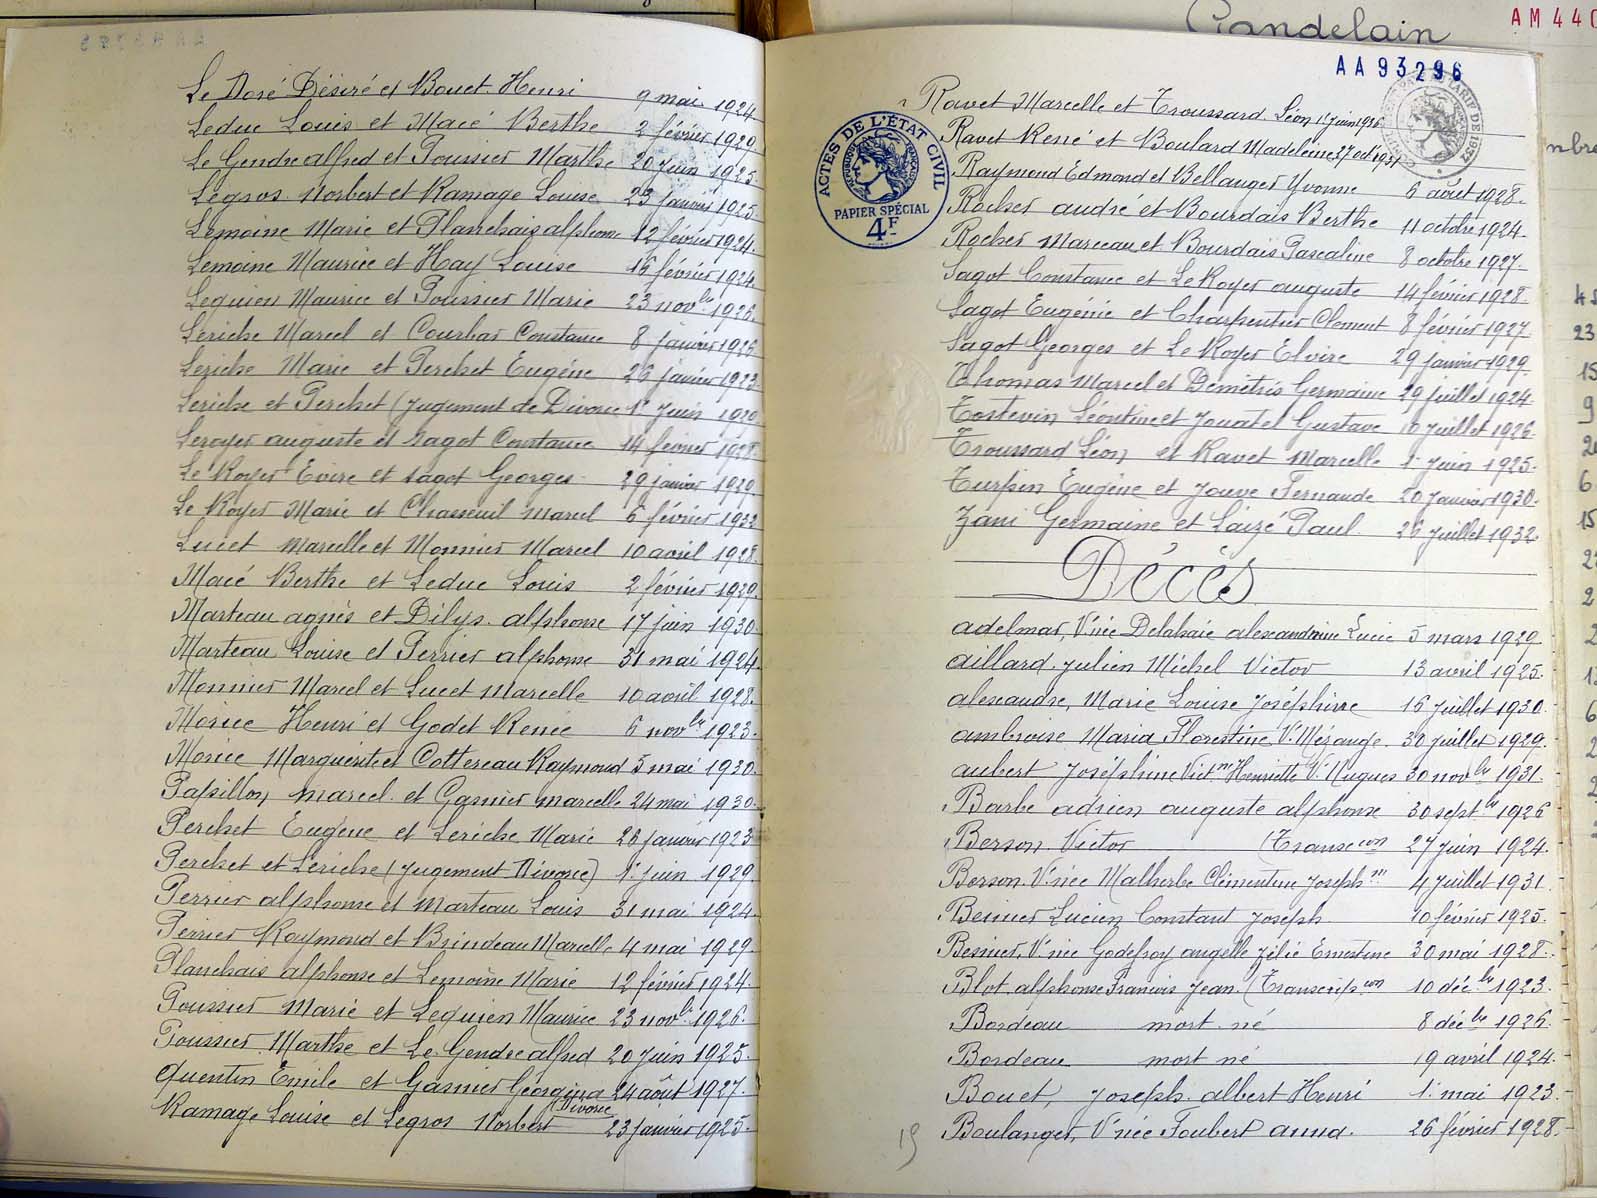 Le Doré Désiré et Bouet Henri 9 mai 1924
Leduc Louis et Macé Berthe 2 février 1929
Le Gendre alfred et Poussier Marthe 20 juin 1925
Legros Norbert et Ramage Louise 23 janvier 1925
Lemoine Marie et Planchais alphonse 12 février 1924
Lemoine Maurice et Hay Louise 16 février 1924
Lequien Maurice et Poussier Marie 23 novbre 1926
Leriche Marcel et Courbar Constance 8 janvier 1926
Leriche Marie et Perchet Eugène 26 janvier 1923
Leriche et Perchet (jugement de Divorce 1er juin 1929
Leroyer auguste et Sagot Constance 14 février 1928
Le Royer Evire et Sagot Georges 29 janvier 1929
Le Royer Marie et Chasseuil Marcel 6 février 1932
Lucet Marcelle et Monnier Marcel 10 avril 1928
Macé Berthe et Leduc Louis 2 février 1929
Marteau agnès et Dilys alphonse 17 juin 1930
Marteau Louise et Perrier alphonse 31 mai 1924
Monnier Marcel et Lucet Marcelle 10 avril 1928
Morice Henri et Godet Renée 6 novbre 1923
Morice Marguerite et Cottereau Raymond 5 mai 1930
Papillon Marcel et Gasnier Marcelle 24 mai 1930
Perchet Eugène et Leriche Marie 26 janvier 1923
Perchet et Leriche (jugement Divorce) 1er juin 1929
Perrier alphonse et Marteau Louis 31 mai 1924
Perrier Raymond et Brindeau Marcelle 4 mai 1929
Planchais alphonse et Lemoine Marie 12 février 1924
Poussier Marie et Lequien Maurice 23 novbre 1926
Poussier Marthe et Le Gendre alfred 20 juin 1925
Quentin Emile et Gasnier Georgina 24 août 1927
Divorce
Ramage Louise et Legros Norbert 23 janvier 1925
Candelain
AM 440
AA 93296
ACTES DE L'ÉTAT CIVIL
RÉPUBLIQUE FRANÇAISE
PAPIER SPÉCIAL
4F
TARIF DE 1937
Ravet Marcelle et Troussard Léon 1er juin 1925
Ravet René et Boulard Madeleine 27 oct 1931
Raymond Edmond et Bellanger Yvonne 6 août 1928
Rocher andré et Bourdais Berthe 11 octobre 1924
Rocher Marceau et Bourdais Pascaline 8 octobre 1927
Sagot Constance et Le Royer auguste 14 février 1928
Sagot Eugénie et Charpentier Clement 8 février 1927
Sagot Georges et Le Royer Elvire 29 janvier 1929
Thomas Marcel et Démétris Germaine 29 juillet 1924
Tostevin Léontine et Jouatel Gustave 10 juillet 1926
Troussard Léon et Ravet Marcelle 1er juin 1925
Turpin Eugène et Jouve Fernande 20 janvier 1930
Zani Germaine et Laizé Paul 26 juillet 1932
Décès
adelmar, Vve née Delahaie alexandrine Lucie 5 mars 1929
aillard Julien Michel Victor 13 avril 1925
alexandre, Marie Louise Joséphine 16 juillet 1930
ambroise Maria Florentine Ve Mézange 30 juillet 1929
aubert Joséphine Victne Henriette Ve Hugues 30 novbre 1931
Barbe adrien auguste alphonse 30 septbre 1926
Berson Victor (Transcon 27 juin 1924
Berson Vve née Malherbe Clémentine Josephne 4 juillet 1931
Besnier Lucien Constant Joseph 10 février 1925
Besnier, Vve née Godefroy angelle Zélie Ernestine 30 mai 1928
Blot alphonse Francois Jean (Transcripcon 10 décbre 1923
Bordeau mort né 8 décbre 1926
Bordeau mort né 19 avril 1924
Bouet, Joseph albert Henri 1er mai 1923
Boulanger, Vve née Foubert anna 26 février 1928
19